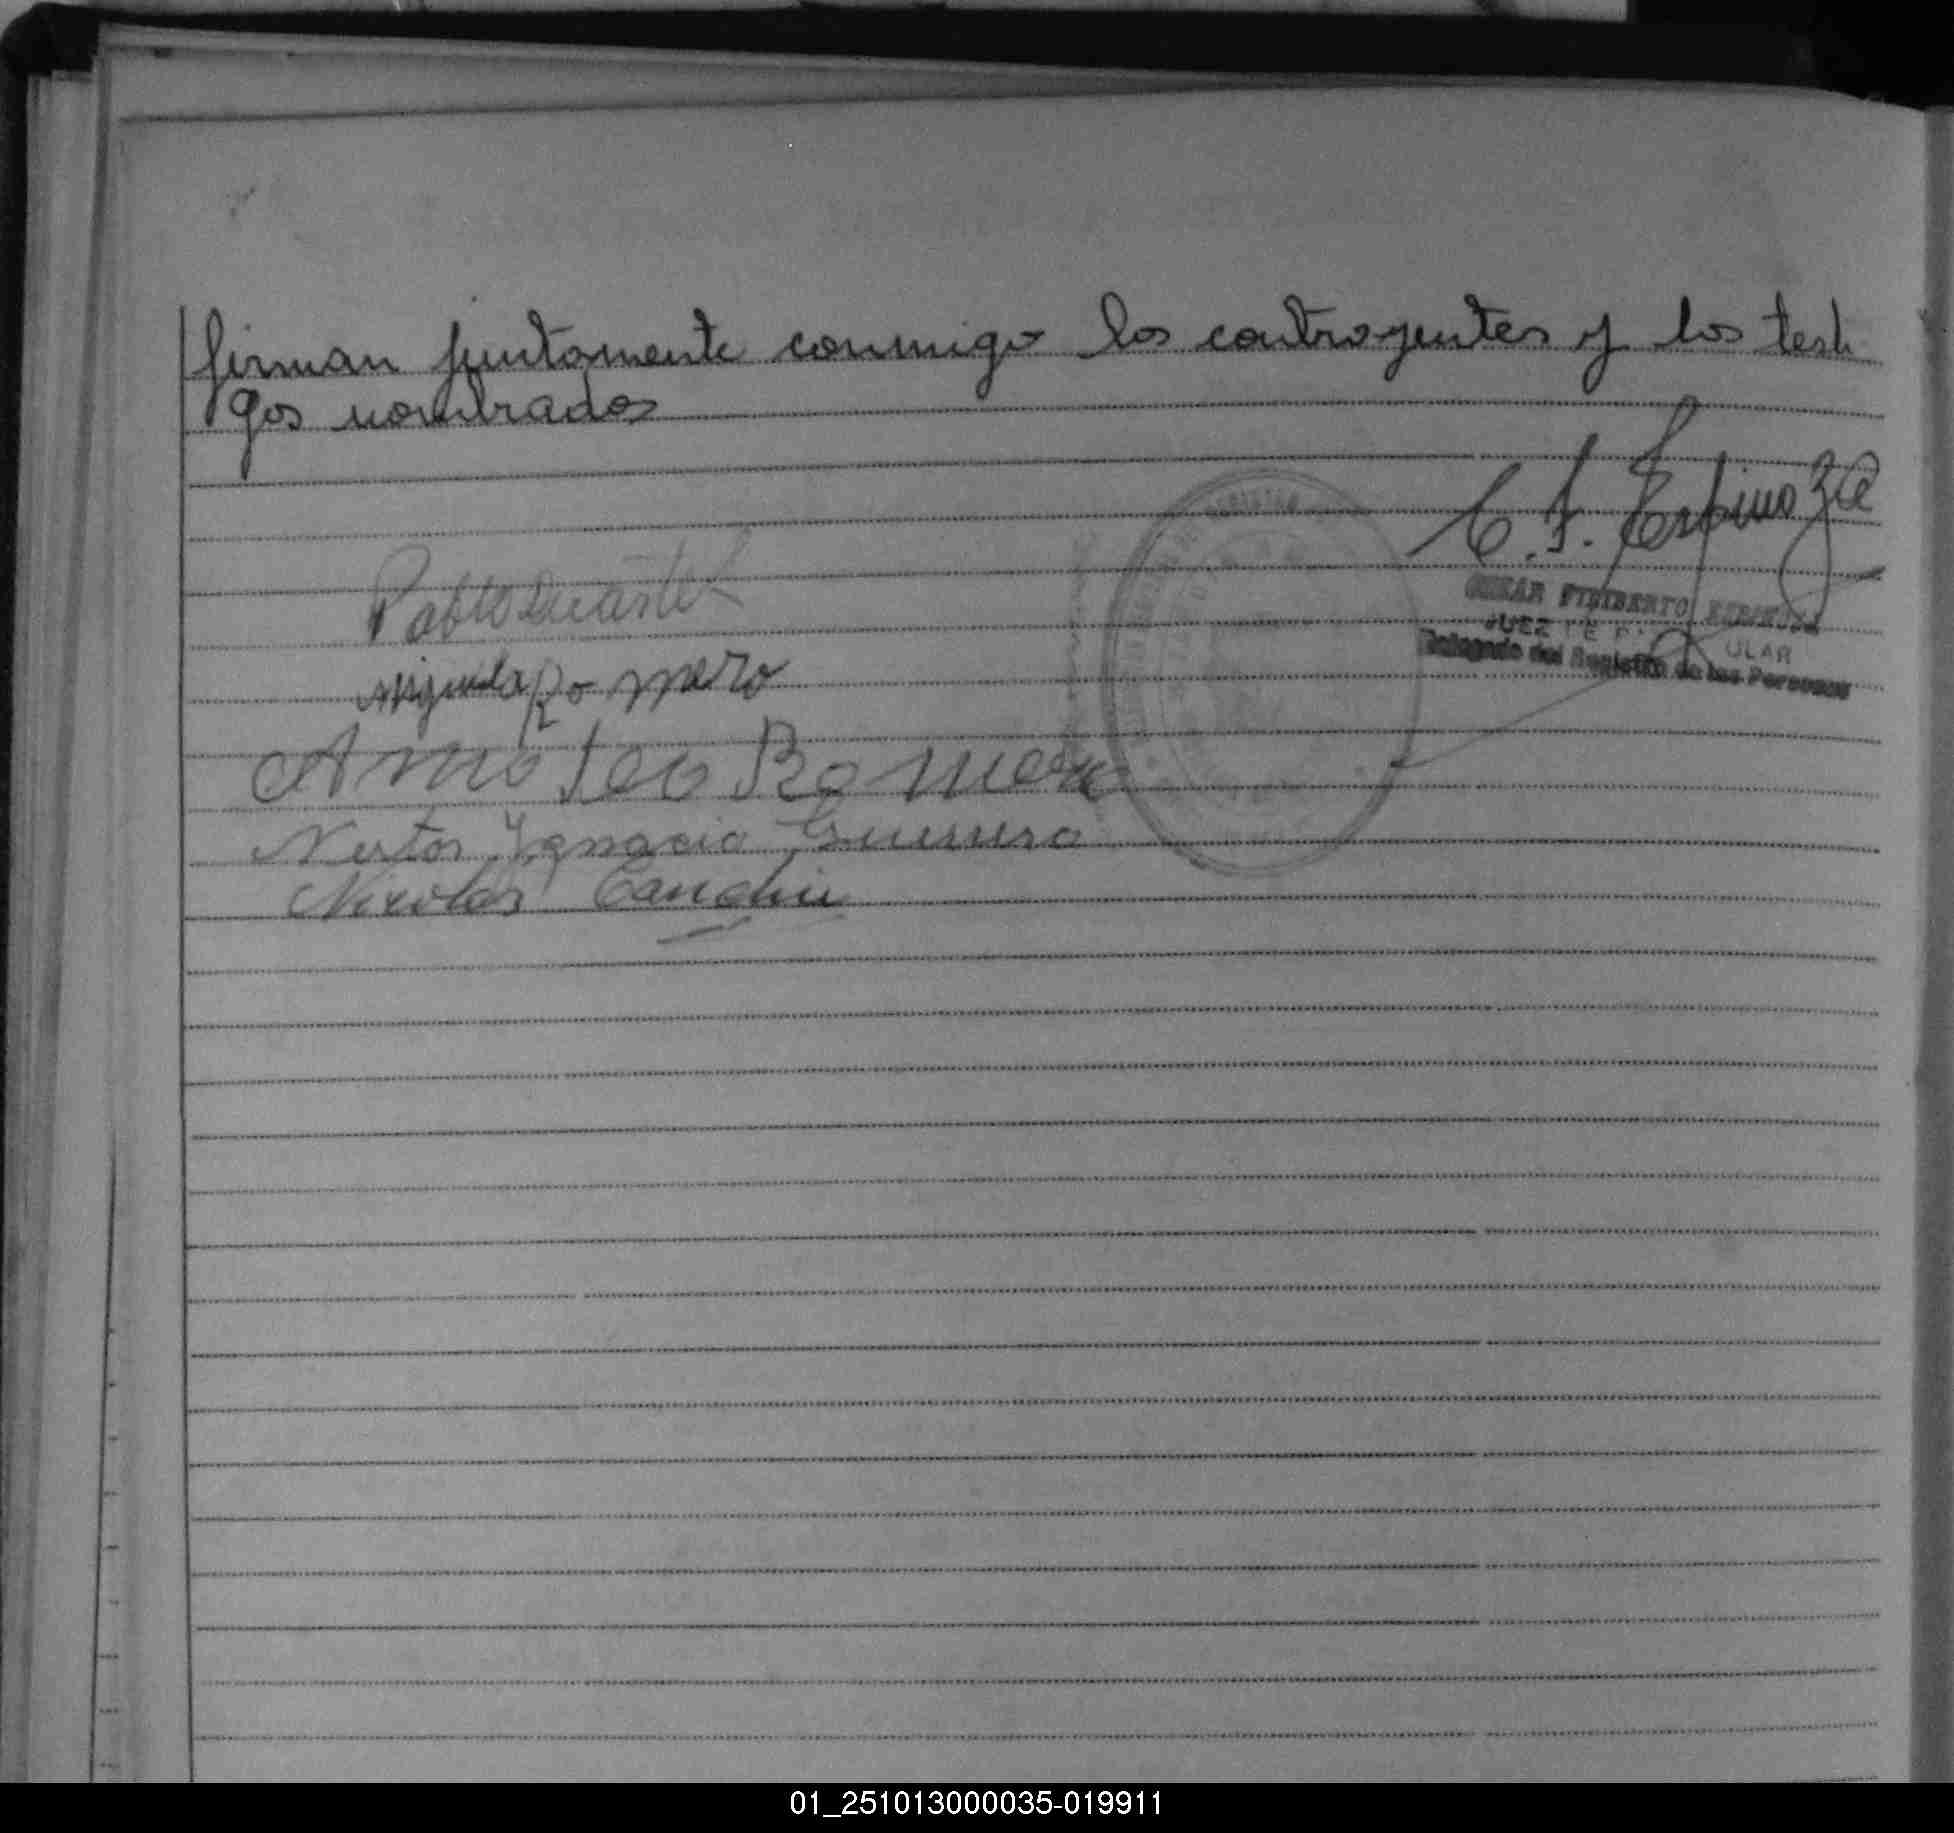 firman juntamente conmigo los contrayentes y los testi
gos nombrados
C. F. Espinoza
FILIBERTO ESPINOZA
JUEZ DE P ULAR
Delegado del Registro de las Personas
Pablo
Miguela Romero
Amateo Romero
Nestor Ygnacio Guerrero
Nicolas
01_251013000035-019911